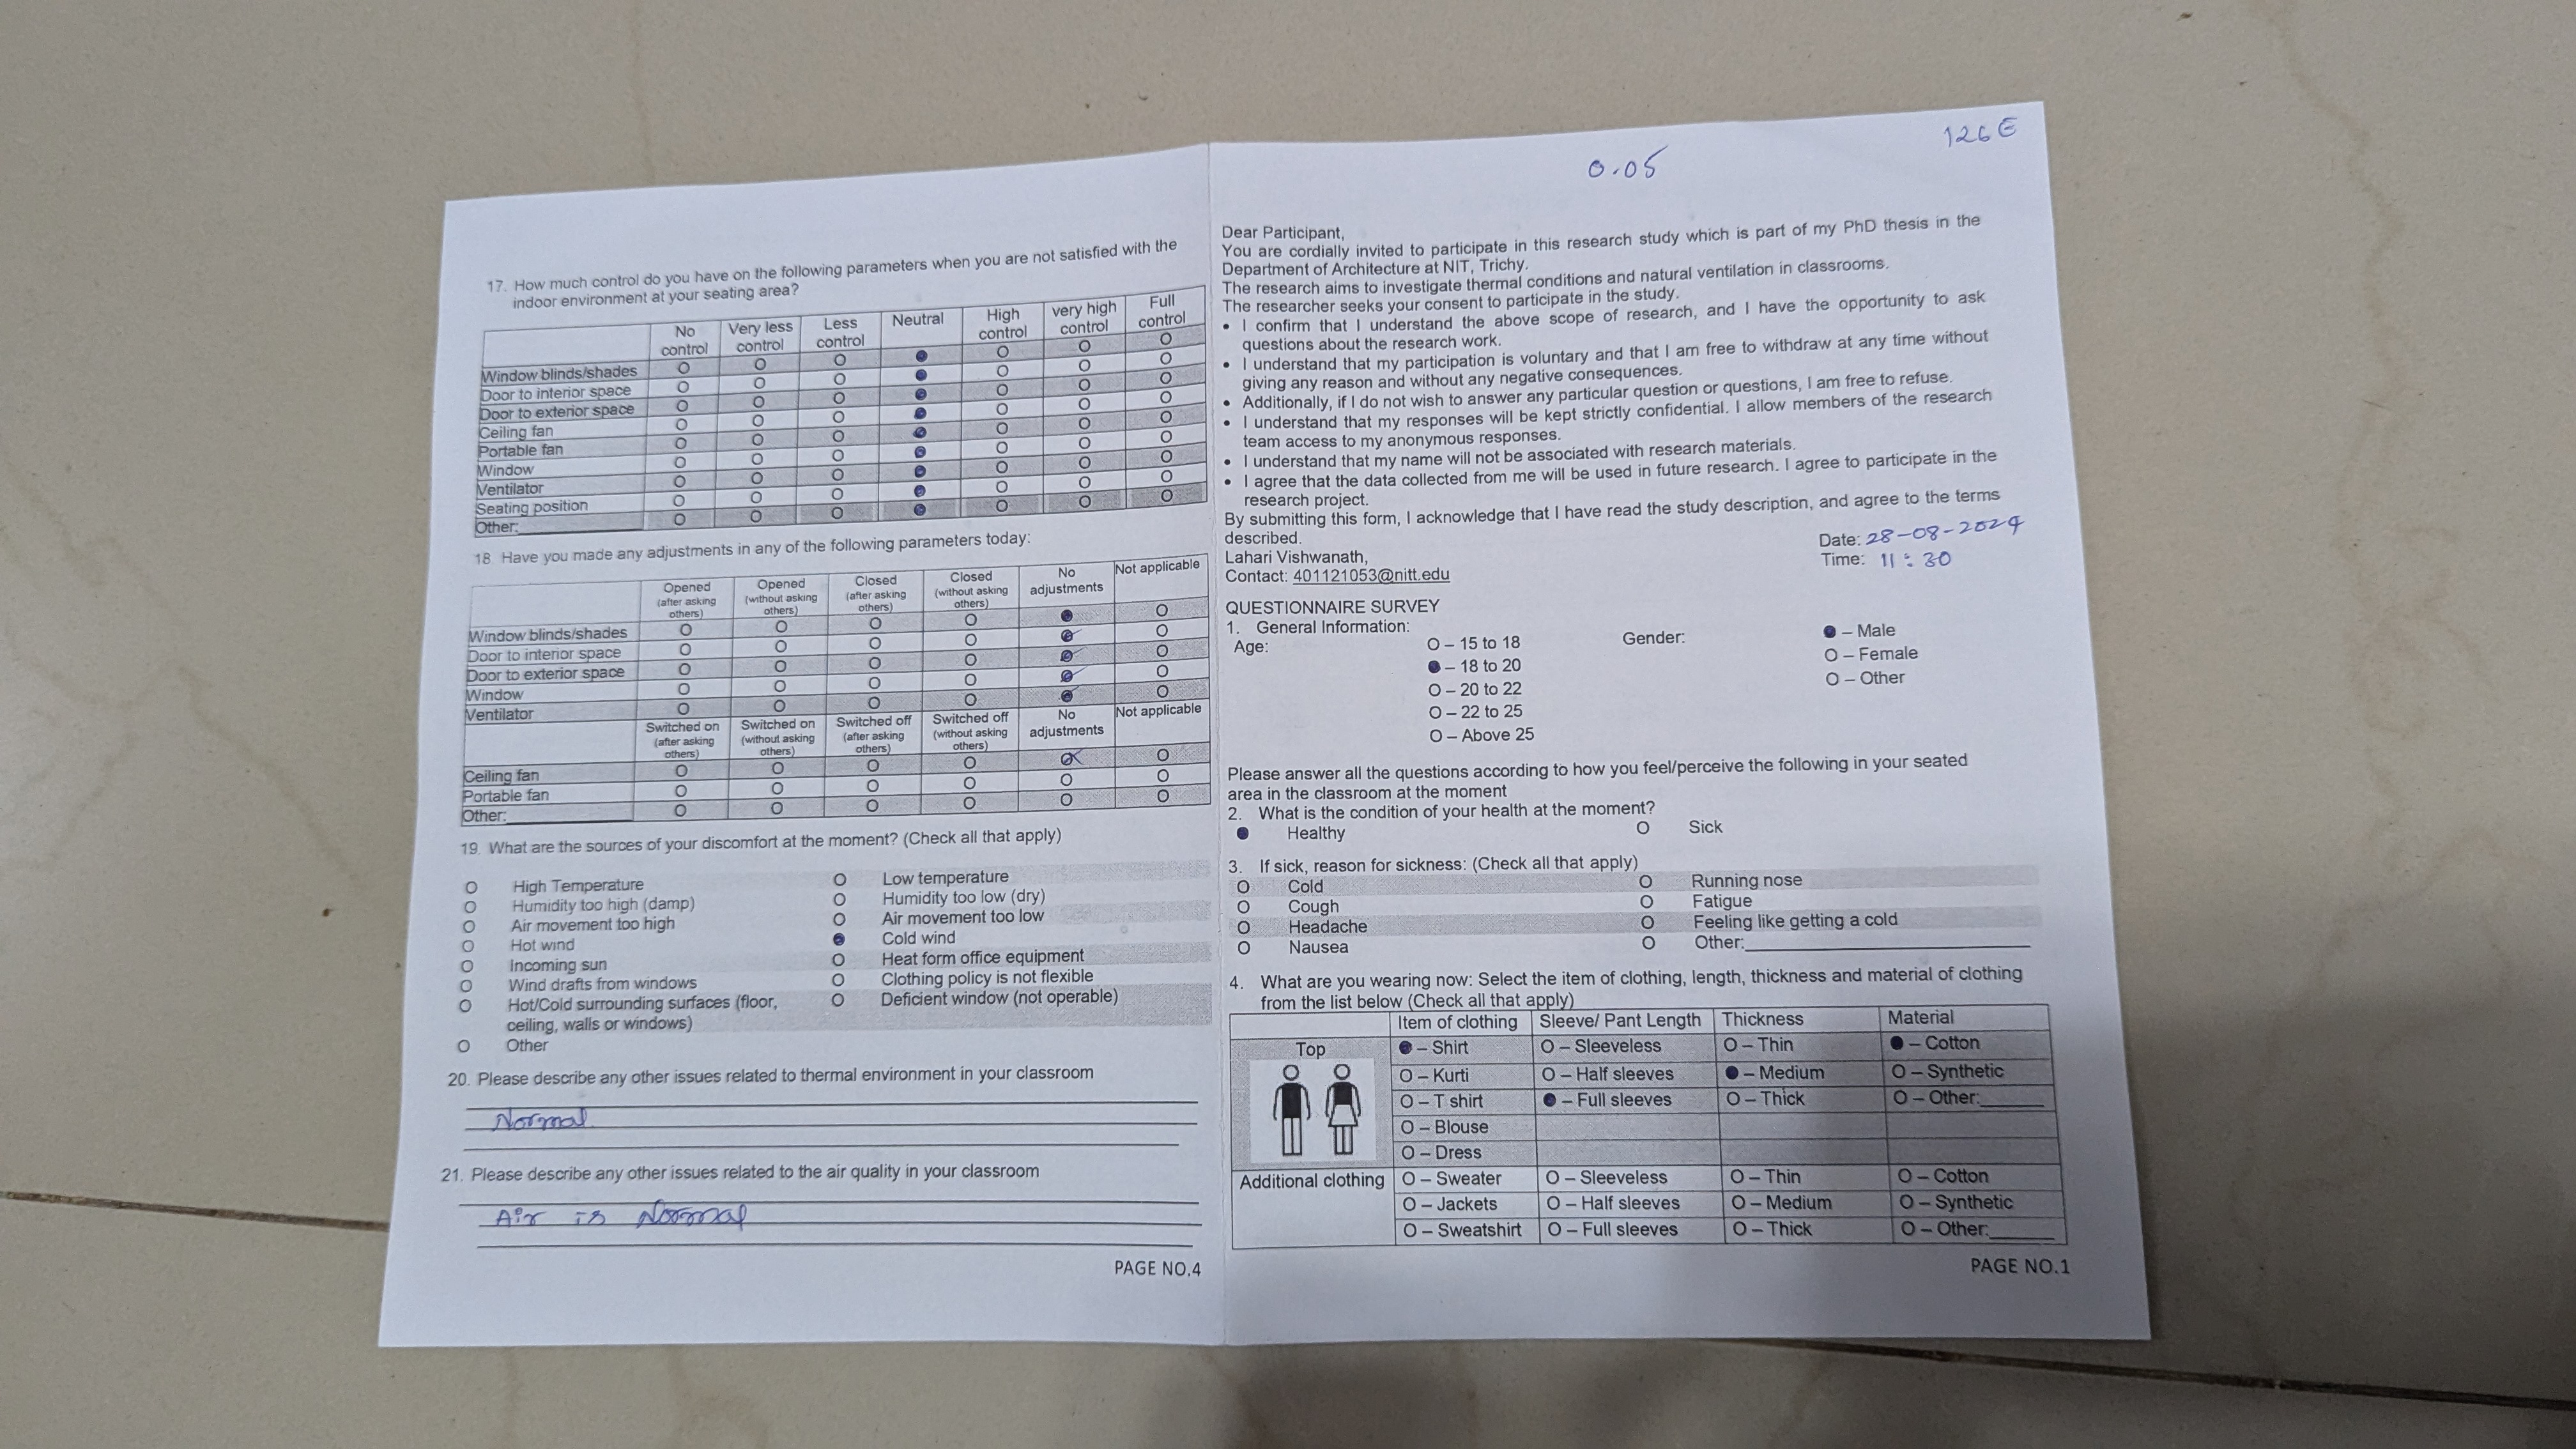 17. How much control do you have on the following parameters when you are not satisfied with the
indoor environment at your seating area?
No control Very less control Less control Neutral High control very high control Full control
Window blinds/shades O O O ● O O O
Door to interior space O O O ● O O O
Door to exterior space O O O ● O O O
Ceiling fan O O O ● O O O
Portable fan O O O ● O O O
Window O O O ● O O O
Ventilator O O O ● O O O
Seating position O O O ● O O O
Other:________ O O O ● O O O
18. Have you made any adjustments in any of the following parameters today:
Opened (after asking others) Opened (without asking others) Closed (after asking others) Closed (without asking others) No adjustments Not applicable
Window blinds/shades O O O O ● O
Door to interior space O O O O ● O
Door to exterior space O O O O ● O
Window O O O O ● O
Ventilator O O O O ● O
Switched on (after asking others) Switched on (without asking others) Switched off (after asking others) Switched off (without asking others) No adjustments Not applicable
Ceiling fan O O O O ● O
Portable fan O O O O O O
Other:________ O O O O O O
19. What are the sources of your discomfort at the moment? (Check all that apply)
O High Temperature O Low temperature
O Humidity too high (damp) O Humidity too low (dry)
O Air movement too high O Air movement too low
O Hot wind ● Cold wind
O Incoming sun O Heat form office equipment
O Wind drafts from windows O Clothing policy is not flexible
O Hot/Cold surrounding surfaces (floor, O Deficient window (not operable)
ceiling, walls or windows)
O Other
20. Please describe any other issues related to thermal environment in your classroom
Normal
21. Please describe any other issues related to the air quality in your classroom
Air is Normal
PAGE NO.4
126 E
0.05
Dear Participant,
You are cordially invited to participate in this research study which is part of my PhD thesis in the
Department of Architecture at NIT, Trichy.
The research aims to investigate thermal conditions and natural ventilation in classrooms.
The researcher seeks your consent to participate in the study.
• I confirm that I understand the above scope of research, and I have the opportunity to ask
questions about the research work.
• I understand that my participation is voluntary and that I am free to withdraw at any time without
giving any reason and without any negative consequences.
• Additionally, if I do not wish to answer any particular question or questions, I am free to refuse.
• I understand that my responses will be kept strictly confidential. I allow members of the research
team access to my anonymous responses.
• I understand that my name will not be associated with research materials.
• I agree that the data collected from me will be used in future research. I agree to participate in the
research project.
By submitting this form, I acknowledge that I have read the study description, and agree to the terms
described.
Date: 28-08-2024
Lahari Vishwanath,
Time: 11:30
Contact: 401121053@nitt.edu
QUESTIONNAIRE SURVEY
1. General Information:
Age: O – 15 to 18 Gender: ● – Male
● – 18 to 20 O – Female
O – 20 to 22 O – Other
O – 22 to 25
O – Above 25
Please answer all the questions according to how you feel/perceive the following in your seated
area in the classroom at the moment
2. What is the condition of your health at the moment?
● Healthy O Sick
3. If sick, reason for sickness: (Check all that apply)
O Cold O Running nose
O Cough O Fatigue
O Headache O Feeling like getting a cold
O Nausea O Other:________
4. What are you wearing now: Select the item of clothing, length, thickness and material of clothing
from the list below (Check all that apply)
Item of clothing Sleeve/ Pant Length Thickness Material
Top ● – Shirt O – Sleeveless O – Thin ● – Cotton
O – Kurti O – Half sleeves ● – Medium O – Synthetic
O – T shirt ● – Full sleeves O – Thick O – Other:______
O – Blouse
O – Dress
Additional clothing O – Sweater O – Sleeveless O – Thin O – Cotton
O – Jackets O – Half sleeves O – Medium O – Synthetic
O – Sweatshirt O – Full sleeves O – Thick O – Other:______
PAGE NO.1